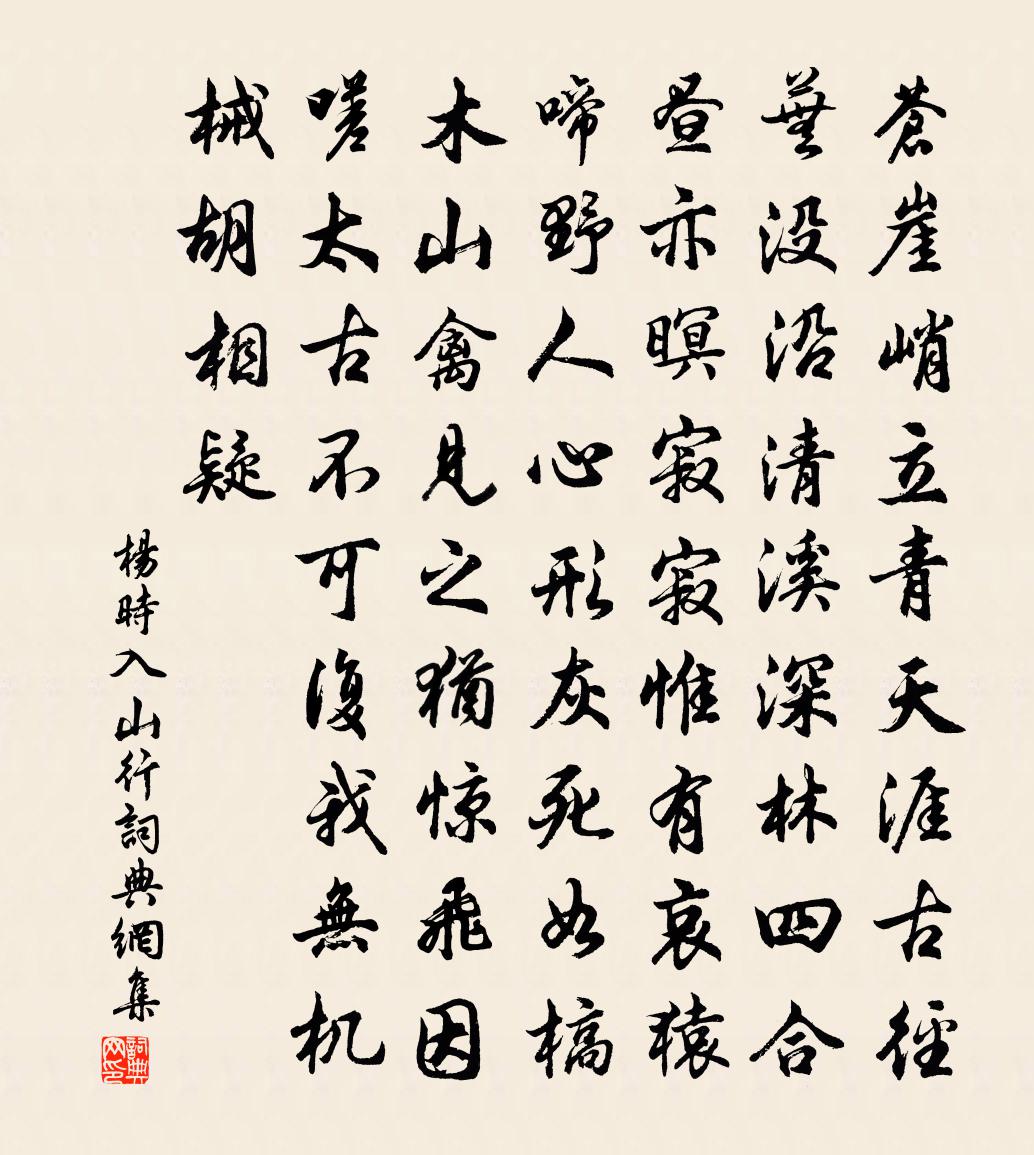 蒼崖峭立青天涯古徑
蕪没沿清溪深林四合
昼亦暝寂寂惟有哀猿
啼野人心形灰死如槁
木山禽見之猶惊飛因
嗟太古不可復我無机
械胡相疑
楊時入山行詞典網集
詞典网印